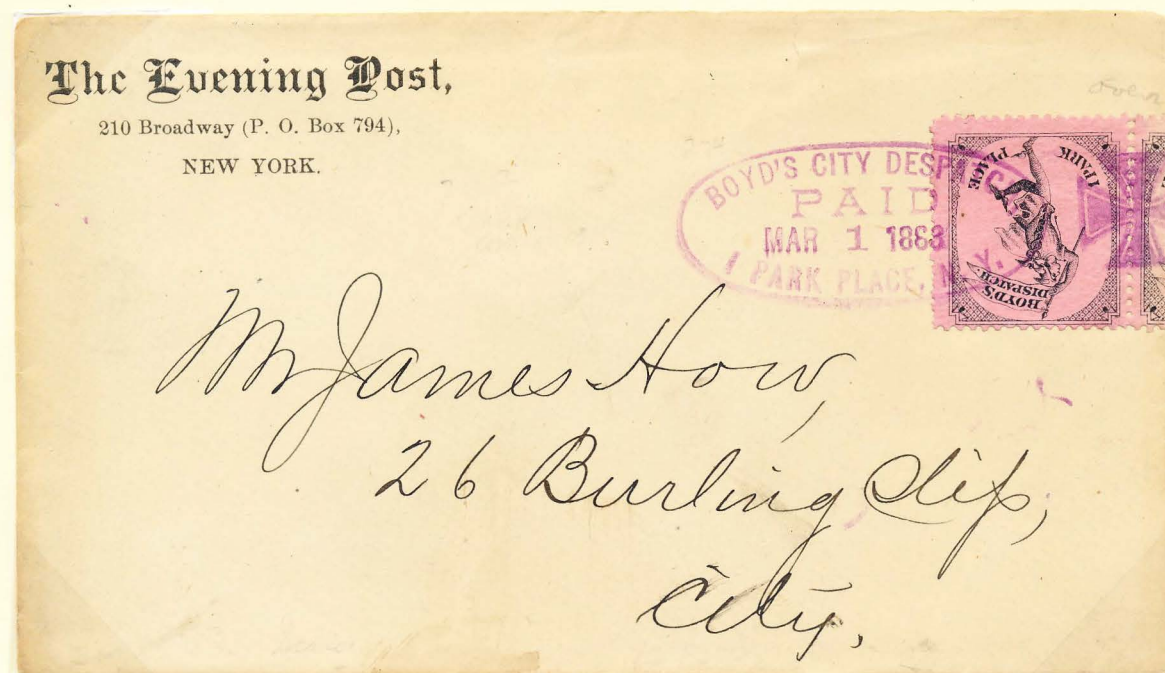 The Evening Post,
210 Broadway (P. O. Box 794),
NEW YORK.
BOYD'S CITY DESPATCH
PAID
MAR 1 1883
1 PARK PLACE, N.Y.
1 PARK
PLACE
BOYD'S
DISPATCH.
Mr James How,
26 Burling Slip,
City.